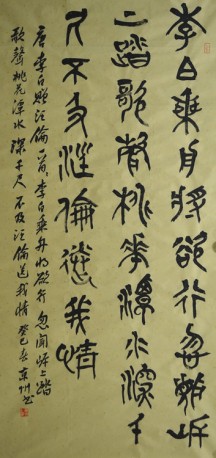 李白乘舟將欲行忽聞岸
上踏歌聲桃花潭水深千
尺不及汪倫送我情
唐李白贈汪倫一首李白乘舟將欲行忽聞岸上踏
歌聲桃花潭水深千尺不及汪倫送我情癸巳春東州書